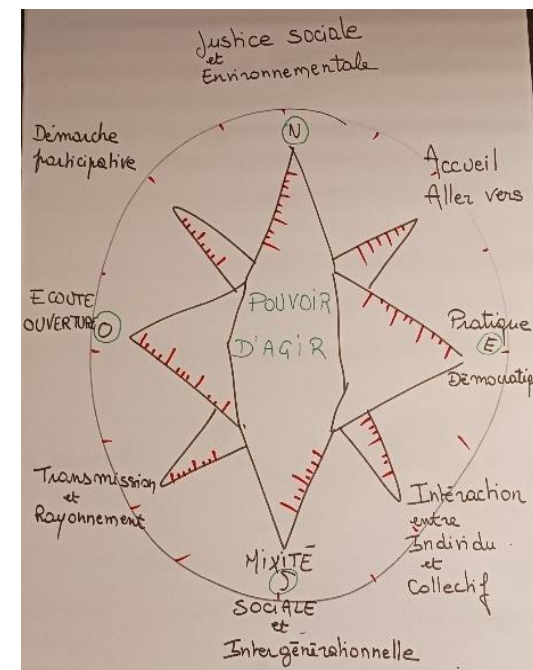 Justice sociale
et
Environnementale
N
Démarche
participative
Accueil
Aller vers
ECOUTE
OUVERTURE
O
POUVOIR
D'AGIR
Pratique
E
Démocratiq
Transmission
et
Rayonnement
Intéraction
entre
Individu
et
Collectif
MIXITÉ
S
SOCIALE
et
Intergénérationnelle